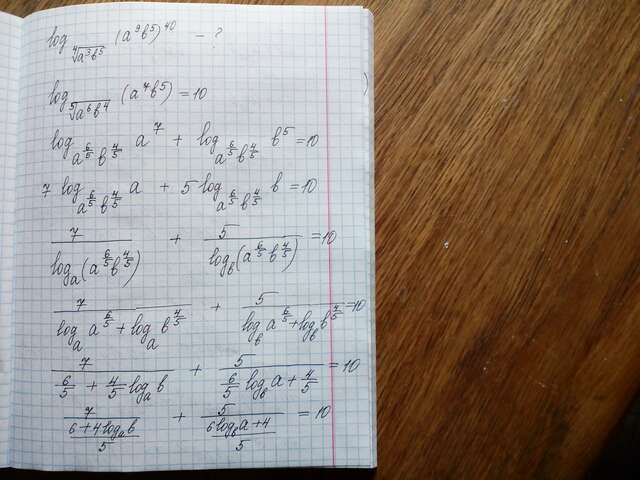 log_{\sqrt[4]{a^3b^5}} (a^9b^5)^{40} - ?
log_{\sqrt[5]{a^6b^4}} (a^7b^5) = 10
log_{a^{6/5}b^{4/5}} a^7 + log_{a^{6/5}b^{4/5}} b^5 = 10
7 log_{a^{6/5}b^{4/5}} a + 5 log_{a^{6/5}b^{4/5}} b = 10
7/(log_a(a^{6/5}b^{4/5})) + 5/(log_b(a^{6/5}b^{4/5})) = 10
7/(log_a a^{6/5} + log_a b^{4/5}) + 5/(log_b a^{6/5} + log_b b^{4/5}) = 10
7/(6/5 + 4/5 log_a b) + 5/(6/5 log_b a + 4/5) = 10
7/((6 + 4 log_a b)/5) + 5/((6 log_b a + 4)/5) = 10